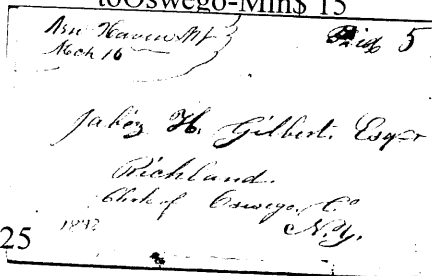 toOswego-Min$ 15
New Haven NY
Mch 16
Paid 5
Jabez H. Gilbert. Esqr
Richland.
Clerk of Oswego. Co
N.Y.
1842
25